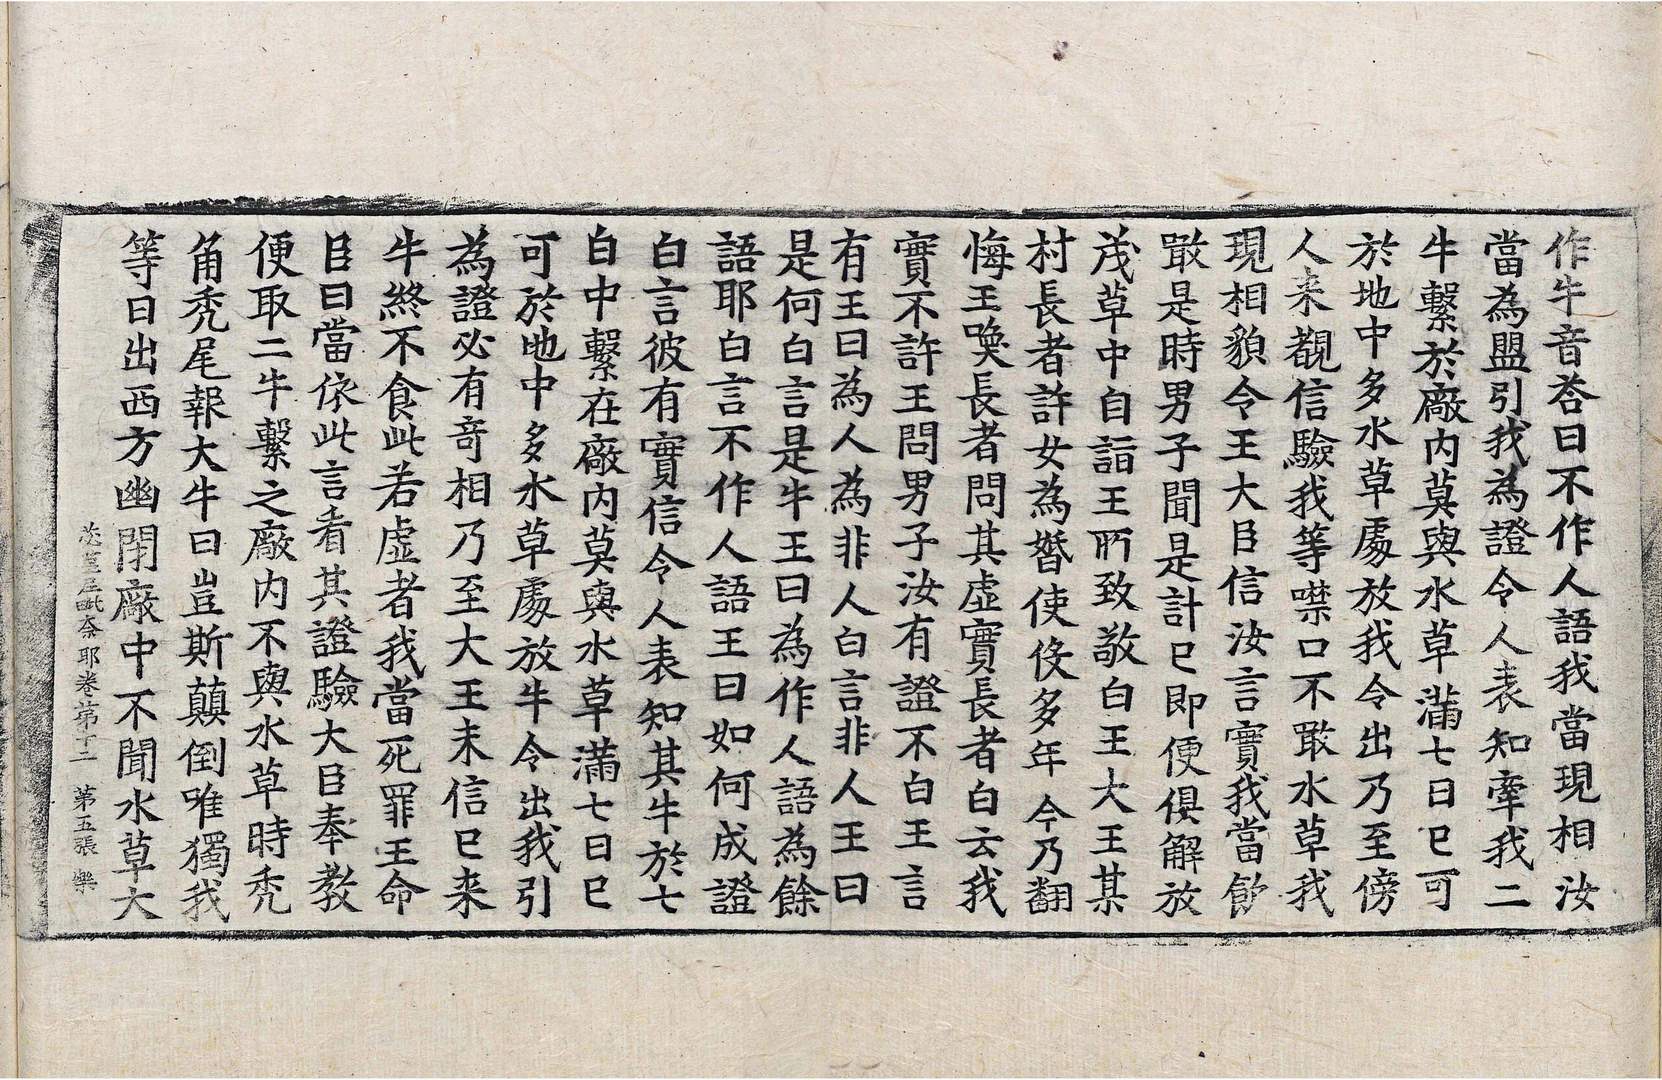 作牛音荅曰不作人語我當現相汝
當為盟引我為證令人表知牽我二
牛繫於廠内莫與水草滿七日已可
於地中多水草處放我令出乃至傍
人来觀信驗我等噤口不敢水草我
現相貌令王大臣信汝言實我當飲
敢是時男子聞是計已即便俱解放
茂草中自詣王所致敬白王大王某
村長者許女為婚使伇多年今乃翻
悔王喚長者問其虛實長者白云我
實不許王問男子汝有證不白王言
有王曰為人為非人白言非人王曰
是何白言是牛王曰為作人語為餘
語耶白言不作人語王曰如何成證
白言彼有實信令人表知其牛於七
日中繫在廠内莫與水草滿七日已
可於地中多水草處放牛令出我引
為證必有奇相乃至大王未信已来
牛終不食此若虛者我當死罪王命
臣曰當依此言看其證驗大臣奉教
便取二牛繫之廠内不與水草時禿
角禿尾報大牛曰豈斯顛倒唯獨我
等日出西方幽閉廠中不聞水草大
苾蒭尼毗奈耶卷第十二 第五張 樂